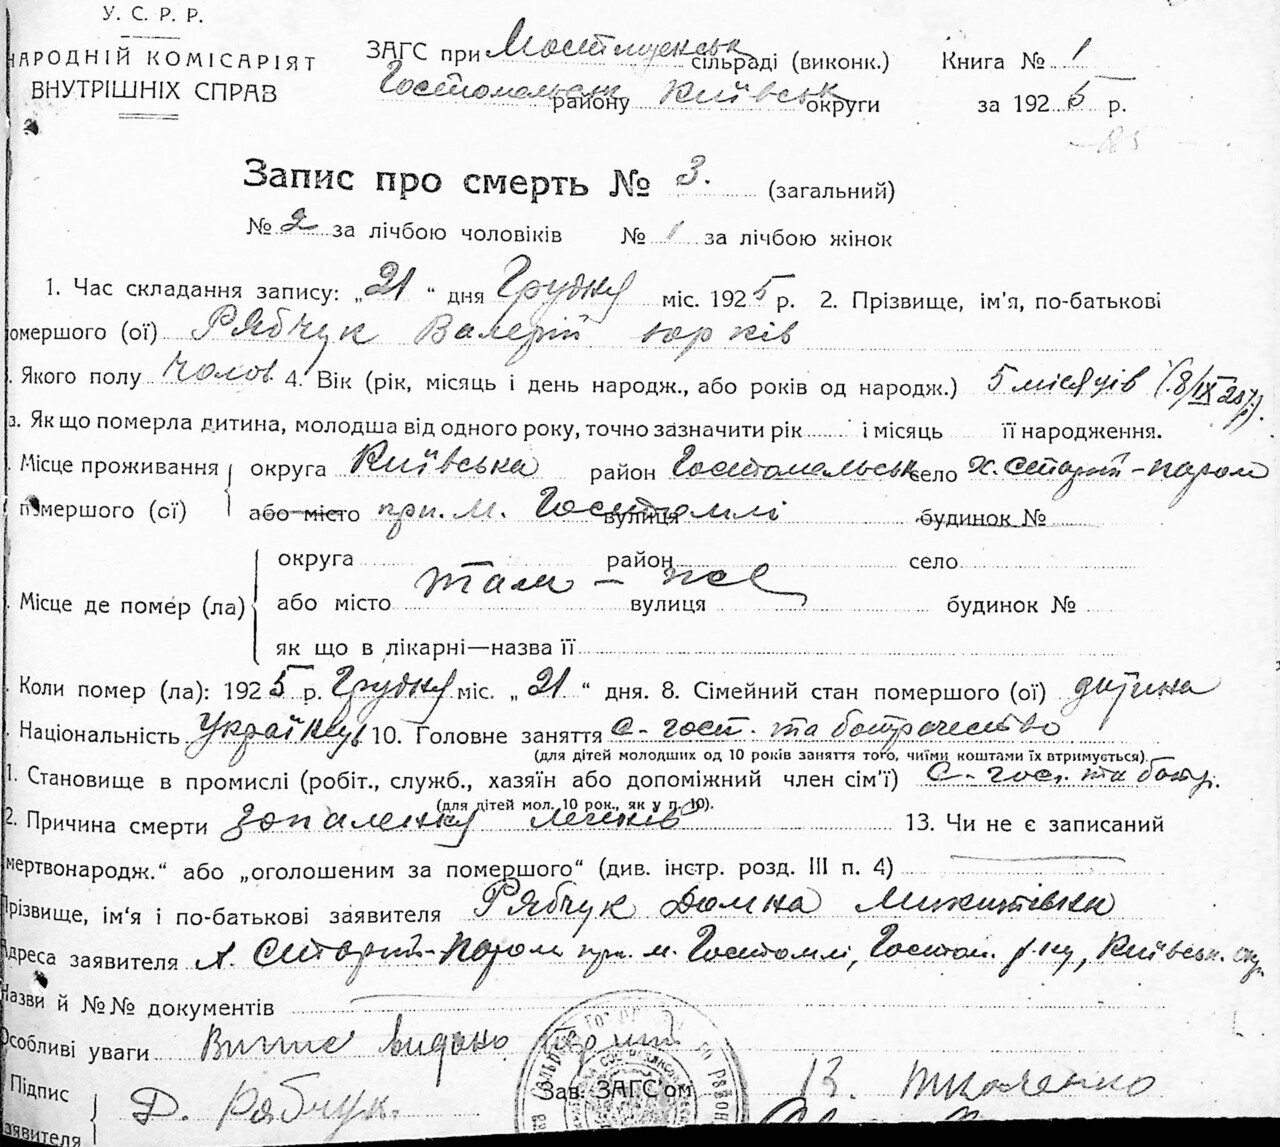 У. С. Р. Р.
НАРОДНІЙ КОМІСАРІЯТ
ВНУТРІШНІХ СПРАВ
ЗАГС при сільраді (виконк.)
Гостомельськ району Київськ округи
Книга № 1
за 1925 р.
Запис про смерть № 3. (загальний)
№ 2 за лічбою чоловіків № 1 за лічбою жінок
1. Час складання запису: „21“ дня Грудня міс. 1925 р. 2. Прізвище, ім'я, по-батькові
помершого (ої) Рябчук Валерій Юрків
. Якого полу Чолов. 4. Вік (рік, місяць і день народж., або років од народж.) 5 місяців
. Як що померла дитина, молодша від одного року, точно зазначити рік і місяць її народження.
. Місце проживання округа Київська район Гостомельськ село х. Старий-Паром
помершого (ої) або місто при. м. Гостомлі вулиця будинок №
округа район село
Місце де помер (ла) там-же або місто вулиця будинок №
як що в лікарні—назва її
. Коли помер (ла): 1925 р. Грудня міс. „21“ дня. 8. Сімейний стан помершого (ої) дитина
. Національність 10. Головне заняття с-госп. та
(для дітей молодших од 10 років заняття того, чиїми коштами їх втримується).
1. Становище в промислі (робіт., служб., хазяїн або допоміжний член сім'ї) С-гос. та
(для дітей мол. 10 рок., як у п. 10).
2. Причина смерти Запалення легенів 13. Чи не є записаний
мертвонародж.“ або „оголошеним за помершого“ (див. інстр. розд. III п. 4)
Прізвище, ім'я і по-батькові заявителя Рябчук Домна Микитівна
Адреса заявителя х. Старий-Паром при. м. Гостомлі, Гостом. р-ну, Київськ. окр.
Назви й №№ документів
Особливі уваги Випис видано
Підпис
заявителя Д. Рябчук.
Зав. ЗАГС'ом Ткаченко